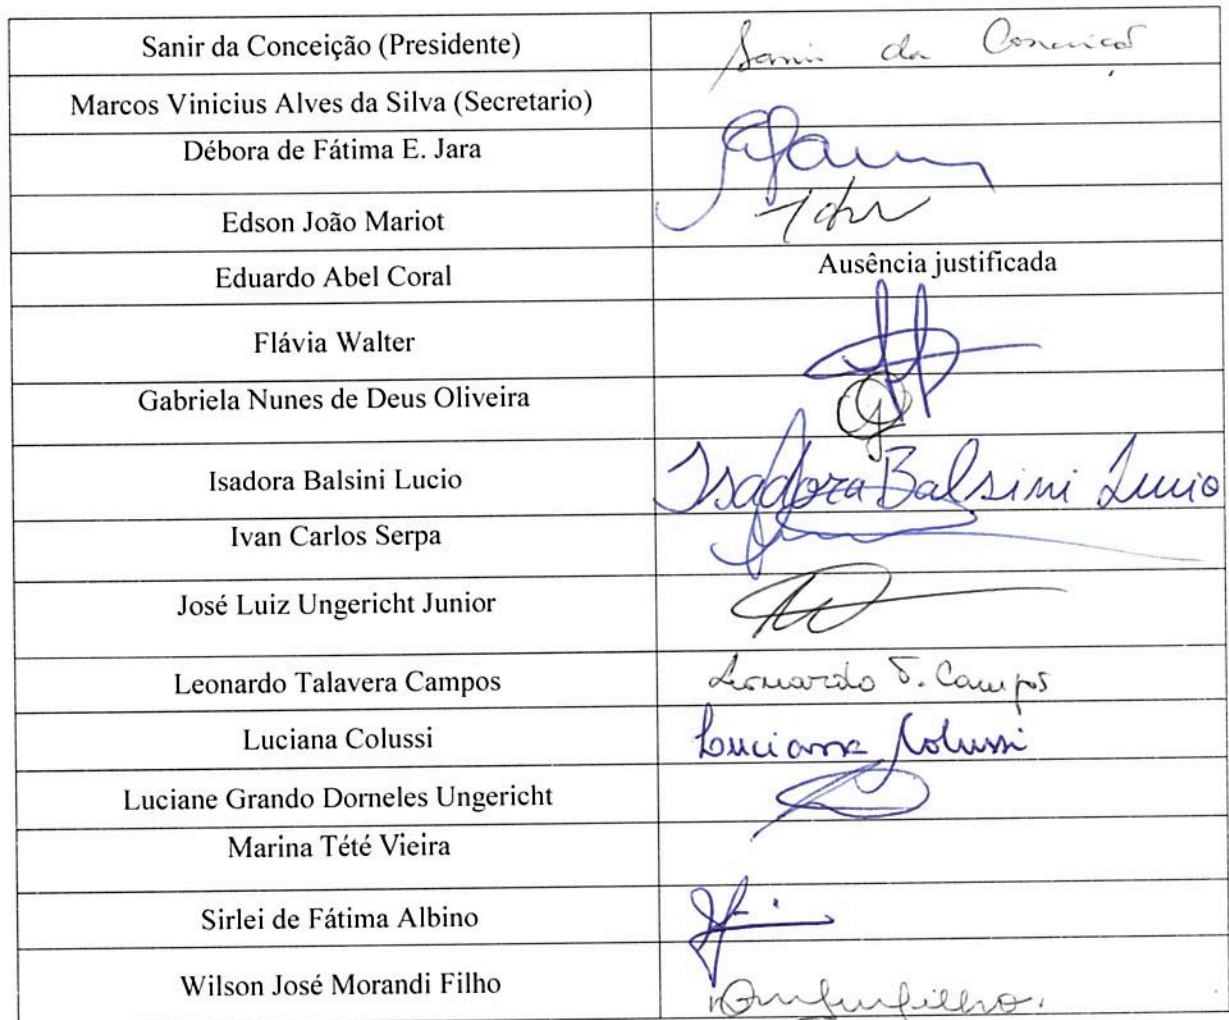 Sanir da Conceição (Presidente) Sanir da Conceição
Marcos Vinicius Alves da Silva (Secretario)
Débora de Fátima E. Jara
Edson João Mariot
Eduardo Abel Coral Ausência justificada
Flávia Walter
Gabriela Nunes de Deus Oliveira
Isadora Balsini Lucio Isadora Balsini Lucio
Ivan Carlos Serpa
José Luiz Ungericht Junior
Leonardo Talavera Campos Leonardo T. Campos
Luciana Colussi Luciana Colussi
Luciane Grando Dorneles Ungericht
Marina Tété Vieira
Sirlei de Fátima Albino
Wilson José Morandi Filho